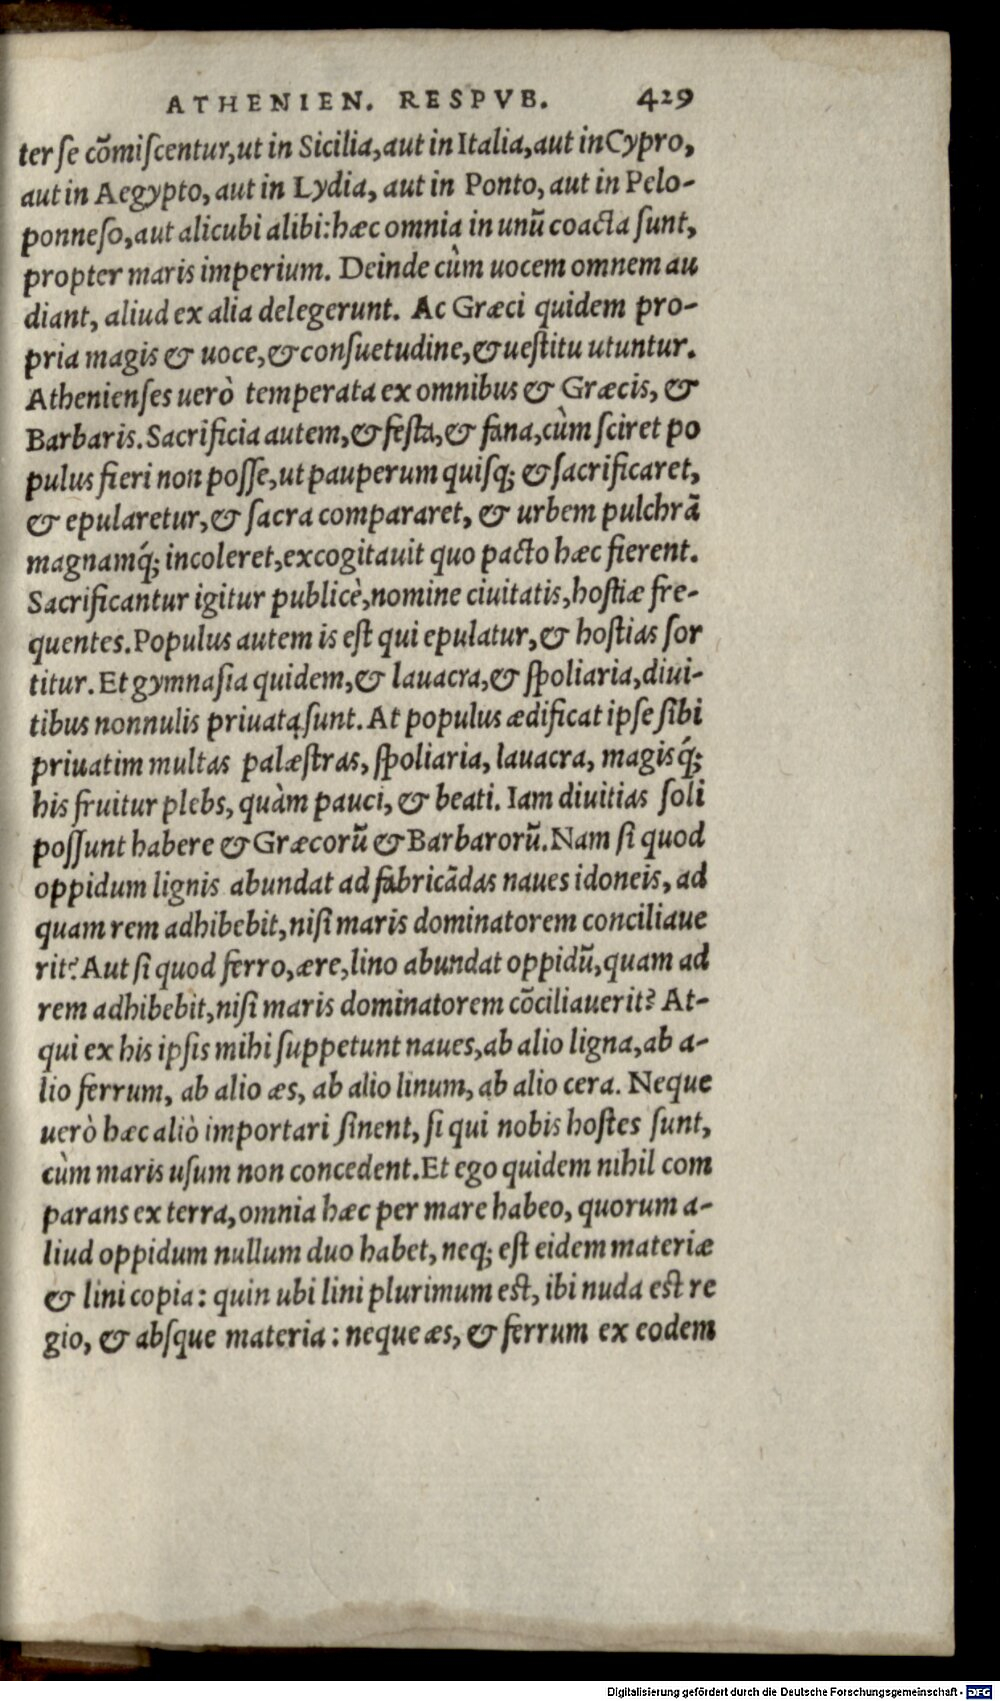 ATHENIEN. RESPVB. 429
ter ſe cõmiſcentur, ut in Sicilia, aut in Italia, aut in Cypro,
aut in Aegypto, aut in Lydia, aut in Ponto, aut in Pelo-
ponneſo, aut alicubi alibi: hæc omnia in unũ coacta ſunt,
propter maris imperium. Deinde cùm uocem omnem au
diant, aliud ex alia delegerunt. Ac Græci quidem pro-
pria magis & uoce, & conſuetudine, & ueſtitu utuntur.
Athenienſes uerò temperata ex omnibus & Græcis, &
Barbaris. Sacrificia autem, & feſta, & fana, cùm ſciret po
pulus fieri non poſſe, ut pauperum quiſq; & ſacrificaret,
& epularetur, & ſacra compararet, & urbem pulchrã
magnamq́; incoleret, excogitauit quo pacto hæc fierent.
Sacrificantur igitur publicè, nomine ciuitatis, hoſtiæ fre-
quentes. Populus autem is eſt qui epulatur, & hoſtias ſor
titur. Et gymnaſia quidem, & lauacra, & ſpoliaria, diui-
tibus nonnulis priuata ſunt. At populus ædificat ipſe ſibi
priuatim multas palæſtras, ſpoliaria, lauacra, magisq́;
his fruitur plebs, quàm pauci, & beati. Iam diuitias ſoli
poſſunt habere & Græcorũ & Barbarorũ. Nam ſi quod
oppidum lignis abundat ad fabricãdas naues idoneis, ad
quam rem adhibebit, niſi maris dominatorem conciliaue
rit? Aut ſi quod ferro, ære, lino abundat oppidũ, quam ad
rem adhibebit, niſi maris dominatorem cõciliauerit? At-
qui ex his ipſis mihi ſuppetunt naues, ab alio ligna, ab a-
lio ferrum, ab alio æs, ab alio linum, ab alio cera. Neque
uerò hæc aliò importari ſinent, ſi qui nobis hoſtes ſunt,
cùm maris uſum non concedent. Et ego quidem nihil com
parans ex terra, omnia hæc per mare habeo, quorum a-
liud oppidum nullum duo habet, neq; eſt eidem materiæ
& lini copia: quin ubi lini plurimum eſt, ibi nuda eſt re
gio, & abſque materia: neque æs, & ferrum ex eodem
Digitalisierung gefördert durch die Deutsche Forschungsgemeinschaft - DFG